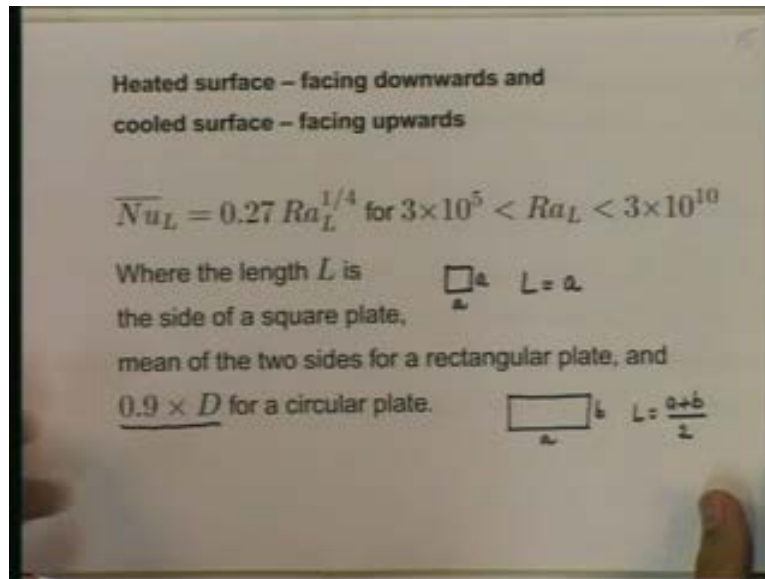 Heated surface – facing downwards and
cooled surface – facing upwards
$\overline{Nu}_L = 0.27 \, Ra_L^{1/4}$ for $3 \times 10^5 < Ra_L < 3 \times 10^{10}$
Where the length L is
a L = a
a
the side of a square plate,
mean of the two sides for a rectangular plate, and
0.9 × D for a circular plate.
b L = (a+b)/2
a